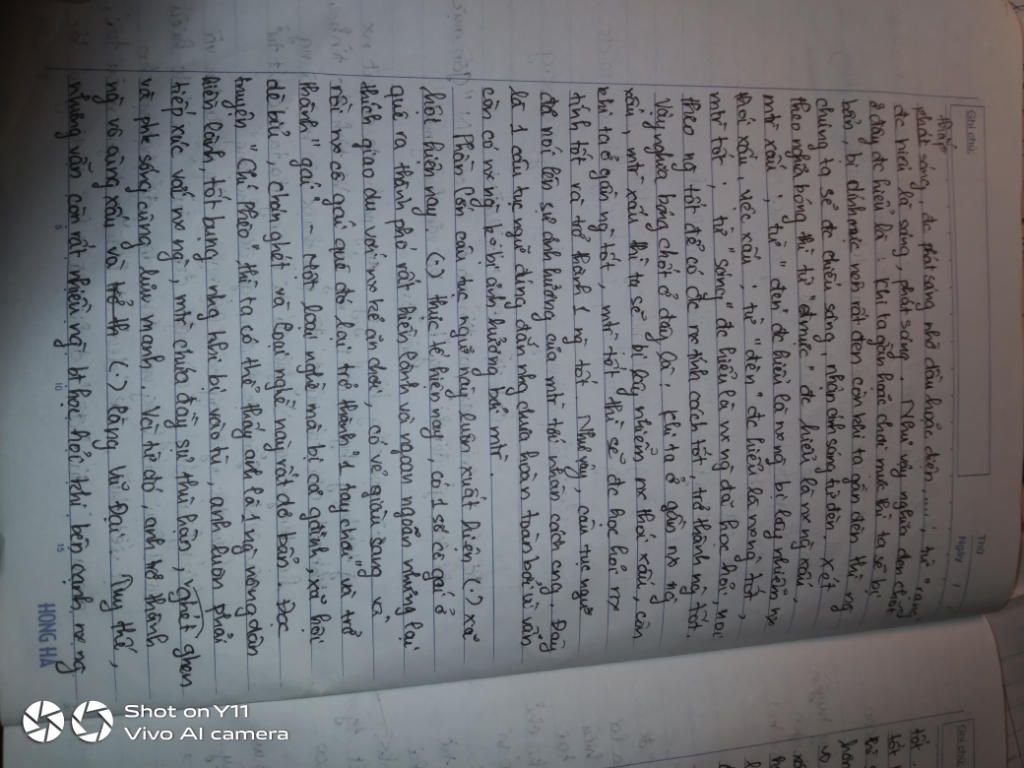 Ghi chú
Thứ
Ngày
thắp
phát sáng, đc phát sáng nhờ dầu hoặc điện,....., từ "rạng"
đc hiểu là sáng, phát sáng. Như vậy nghĩa đen
ở đây đc hiểu là: Khi ta gần hoặc chơi mực thì ta sẽ bị
bẩn, bị dính mực nên rất đen còn khi ta gần đèn thì ng
chúng ta sẽ đc chiếu sáng, nhận ánh sáng từ đèn, xét
theo nghĩa bóng thì từ "mực" đc hiểu là ng xấu,
mtr xấu, từ "đen" đc hiểu là bị lây nhiễm
thói xấu, việc xấu, từ "đèn" đc hiểu là ng tốt,
mtr tốt, từ "sáng" đc hiểu là ng đã học hỏi noi
theo ng tốt để có đc tính cách tốt, trở thành ng tốt.
Vậy nghĩa bóng chót ở đây là, khi ta ở gần ng
xấu, mtr xấu thì ta sẽ bị lây nhiễm thói xấu, còn
khi ta ở gần ng tốt, mtr tốt thì sẽ đc học hỏi
tính tốt và trở thành 1 ng tốt. Như vậy, câu tục ngữ
đã nói lên sự ảnh hưởng của mtr tới nhân cách Đây
là 1 câu tục ngữ đúng đắn chưa hoàn toàn bởi vì vẫn
còn có ng không bị ảnh hưởng bởi mtr.
Phần lớn câu tục ngữ này luôn xuất hiện (.) xã
hội hiện nay (.) thực tế hiện nay, có 1 số cô gái ở
quê ra thành phố rất hiền lành và ngoan ngoãn nhưng lại
thích giao du với kẻ ăn chơi, có vẻ giàu sang
rồi cô gái quê đó lại trở thành 1 tay chơi và trở
thành "gái" - Một loại nghề mà bị cả gđình, xã hội
dè bỉu, chán ghét và loại nghề này rất dơ bẩn. Đọc
truyện "Chí Phèo" thì ta có thể thấy anh là 1 ng nông dân
hiền lành, tốt bụng khi bị vào tù, anh luôn phải
tiếp xúc với ng, mtr chứa đầy sự thù hận, ghét ghen
và sống càng lưu manh. Và từ đó, anh trở thành
ng vô cùng xấu (.) làng Vũ Đại. Tuy thế,
nhưng vẫn còn rất nhiều ng bt học hỏi thì bên cạnh ng
5
10
15
HONG HA
Shot on Y11
Vivo AI camera
Ghi chú